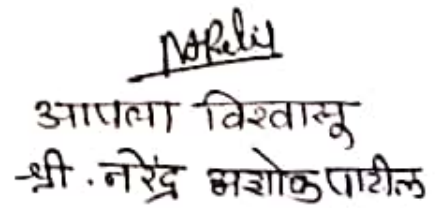 आपला विश्वासू
श्री. नरेंद्र अशोक पाटील